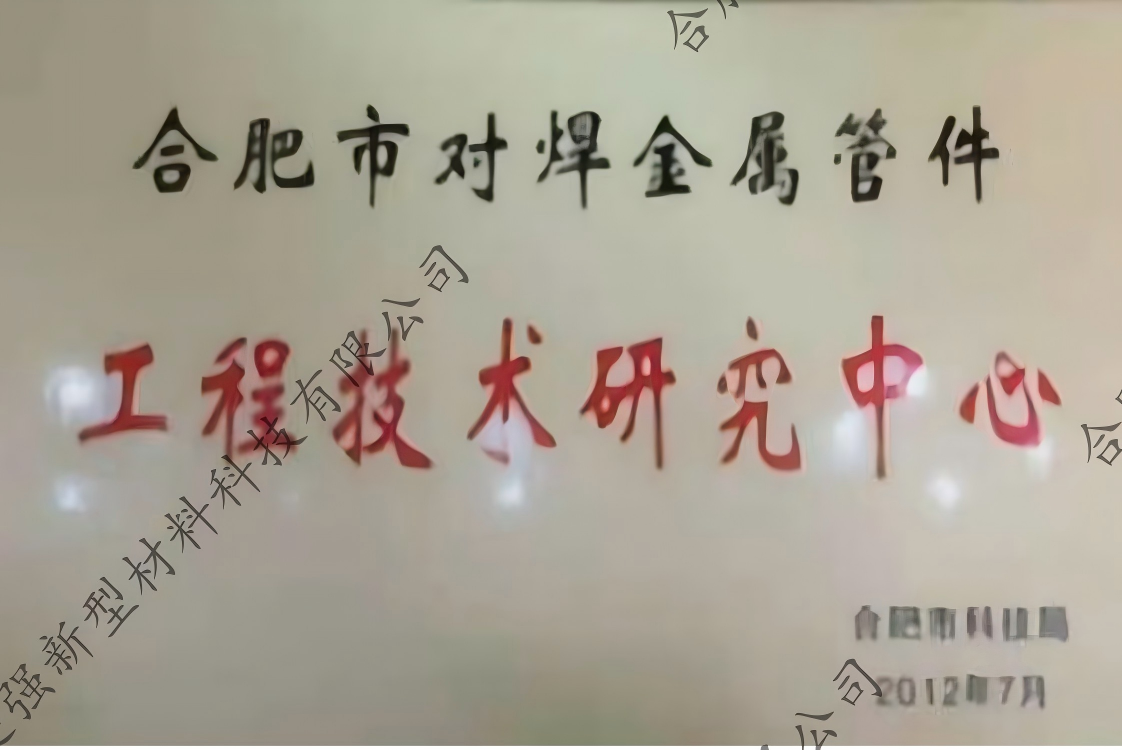 合肥市对焊金属管件
工程技术研究中心
合肥市科技局
2012年7月
强新型材料科技有限公司
合
合
公司